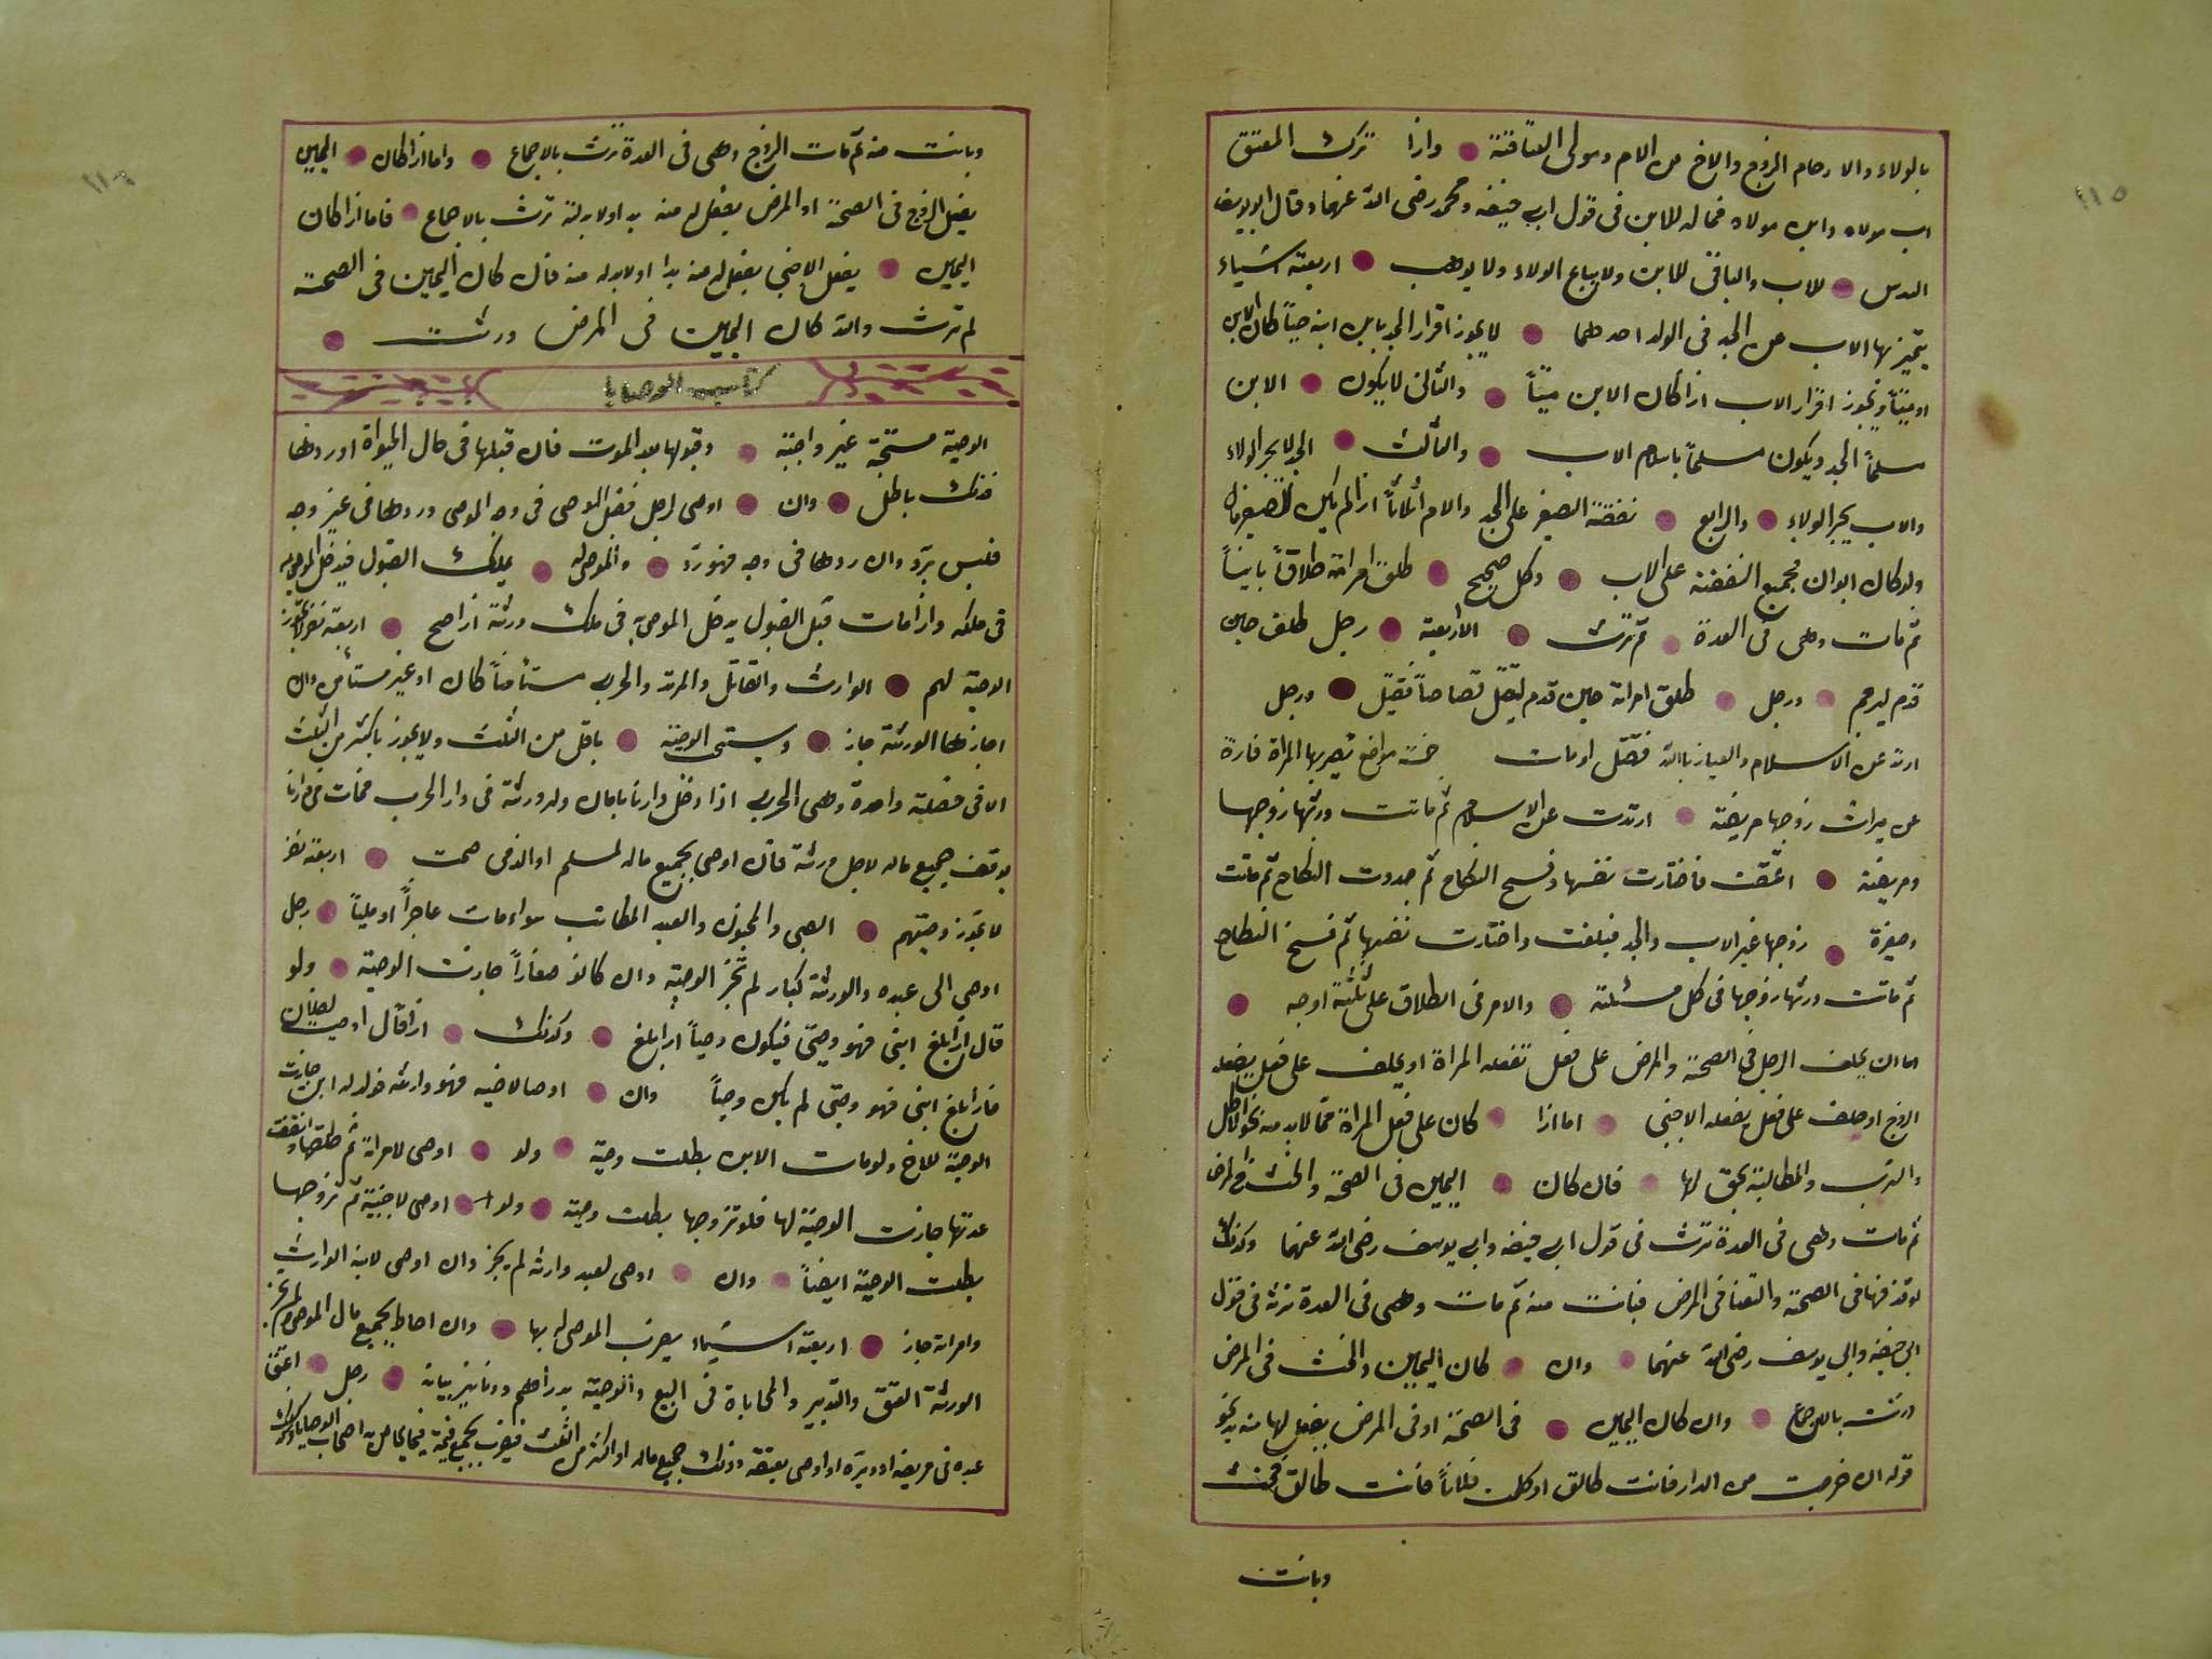 ٢١٥
بالولاء والارحام الزوج والاخ من الام ومولى العتاقة وازا ترك المعتق
اب مولاه وابن مولاه فماله للابن فى قول ابى حنيفه ومحمد رضى الله عنهما وقال ابو يوسف
السدس للاب والباقى للابن ولا يباع الولاء ولا يوهب اربعة اشياء
يتميز بها الاب من الجد فى الولد احدهما لا يجوز اقرار الجد بابن ابنه حياً كان الابن
او ميتاً ويجوز اقرار الاب ازا كان الابن ميتاً والثانى لا يكون الابن
مسلماً الجد ويكون مسلماً باسلام الاب والثالث الجد لا يجر الولاء
والاب يجر الولاء والرابع نفقة الصغير على الجد والام اثلاثاً ازا لم يكن للصغير مال
ولو كان ابوان فجميع النفقة على الاب وكل صحيح طلق امراته طلاقاً بايناً
ثم مات وهى فى العدة لم ترث الا اربعة رجل طلق حين
قدم ليرجم ورجل طلق امراته حين قدم ليقتل قصاصاً فقتل ورجل
ارتد عن الاسلام والعياذ بالله فقتل او مات خمسة مواضع تصير بها المراة فارة
عن ميراث زوجها مريضة ارتدت عن الاسلام ثم ماتت ورثها زوجها
ومريضة اعتقت فاختارت نفسها وفسخ النكاح ثم جددت النكاح ثم ماتت
وصغيرة زوجها غير الاب والجد فبلغت واختارت نفسها ثم فسخ النكاح
ثم ماتت ورثها زوجها فى كل مسئلة والامر فى الطلاق على ثلثة اوجه
اما ان يحلف الرجل فى الصحة والمرض على فعل تفعله المراة او يحلف على فعل يفعله
الزوج او حلف على فعل يفعله الاجنبى اما ازا كان على فعل المراة مما لابد منه نحو الاكل
والشرب والمطالبة بحق لها فان كان اليمين فى الصحة والحنث فى المرض
ثم مات وهى فى العدة ترث فى قول ابى حنيفه وابى يوسف رضى الله عنهما وكذلك
لو قذفها فى الصحة والتعنا فى المرض فبانت منه ثم مات وهى فى العدة ترثه فى قول
ابى حنيفه وابى يوسف رضى الله عنهما وان كان اليمين والحنث فى المرض
ورثت بالاجماع وان كان اليمين فى الصحة او فى المرض بفعل لها منه بد نحو
قوله ان خرجت من الدار فانت طالق او كلمت فلاناً فانت طالق فحنث
وبانت
٢١٦
وبانت منه ثم مات الزوج وهى فى العدة ترث بالاجماع واما ازا كان اليمين
بفعل الزوج فى الصحة او المرض بفعل له منه بد او لابد له ترث بالاجماع فاما ازا كان
اليمين بفعل الاجنبى بفعل له منه بد او لابد له منه فان كان اليمين فى الصحة
لم ترث وان كان اليمين فى المرض ورثت
كتاب الوصايا
الوصية مستحبة غير واجبة وقبولها بعد الموت فان قبلها فى حال الحيواة او ردها
فذلك باطل وان اوصى لرجل فقبل الموصى فى وجه الموصى وردها فى غير وجه
فليس برد وان ردها فى وجه فهو رد والموصى له يملك القبول فيدخل الموصى به
فى ملكه وازا مات قبل القبول يدخل الموصى به فى ملك ورثة ازا صح اربعة نفر لا يجوز
الوصية لهم الوارث والقاتل والمرتد والحربى مستأمناً كان او غير مستأمن وان
اجازها الورثة جاز ويستحب الوصية باقل من الثلث ولا يجوز باكثر من الثلث
الا فى خصلة واحدة وهى الحربى اذا دخل دارنا بامان وله ورثة فى دار الحرب فمات فى دارنا
يوقف جميع ماله لاجل ورثة فان اوصى بجميع ماله لمسلم او الذمى صحت اربعة نفر
لا يجوز وصيتهم الصبى والمجنون والعبد المكاتب سواء مات عاجزاً او ملياً رجل
اوصى الى عبده والورثة كبار لم تجز الوصية وان كانوا صغاراً جازت الوصية ولو
قال ازا بلغ ابنى فهو وصيى فيكون وصياً ازا بلغ وكذلك ازا قال اوصيت لفلان
فازا بلغ ابنى فهو وصيى لم يكن وصياً وان اوصا لاخيه فهو وارثه فولد له ابن جازت
الوصية للاخ ولو مات الابن بطلت وصية ولو اوصى لامراته ثم طلقها وانقضت
عدتها جازت الوصية لها فلو تزوجها بطلت وصية ولو اوصى لاجنبية ثم تزوجها
بطلت الوصية ايضاً وان اوصى لعبد وارثه لم يجز وان اوصى لابنه الوارث
وامراته جاز اربعة اشياء يضرب الموصى له بها وان احاط بجميع مال الموصى ولم يجز
الورثة العتق والتدبير والمحاباة فى البيع والوصية بدراهم ودنانير بيانه رجل اعتق
عبده فى مريضه او دبره او اوصى بعتقه وذلك جميع ماله او اكثر من الثلث فيضرب بجميع قيمة فيما يحاص به اصحاب الوصايا وكذلك